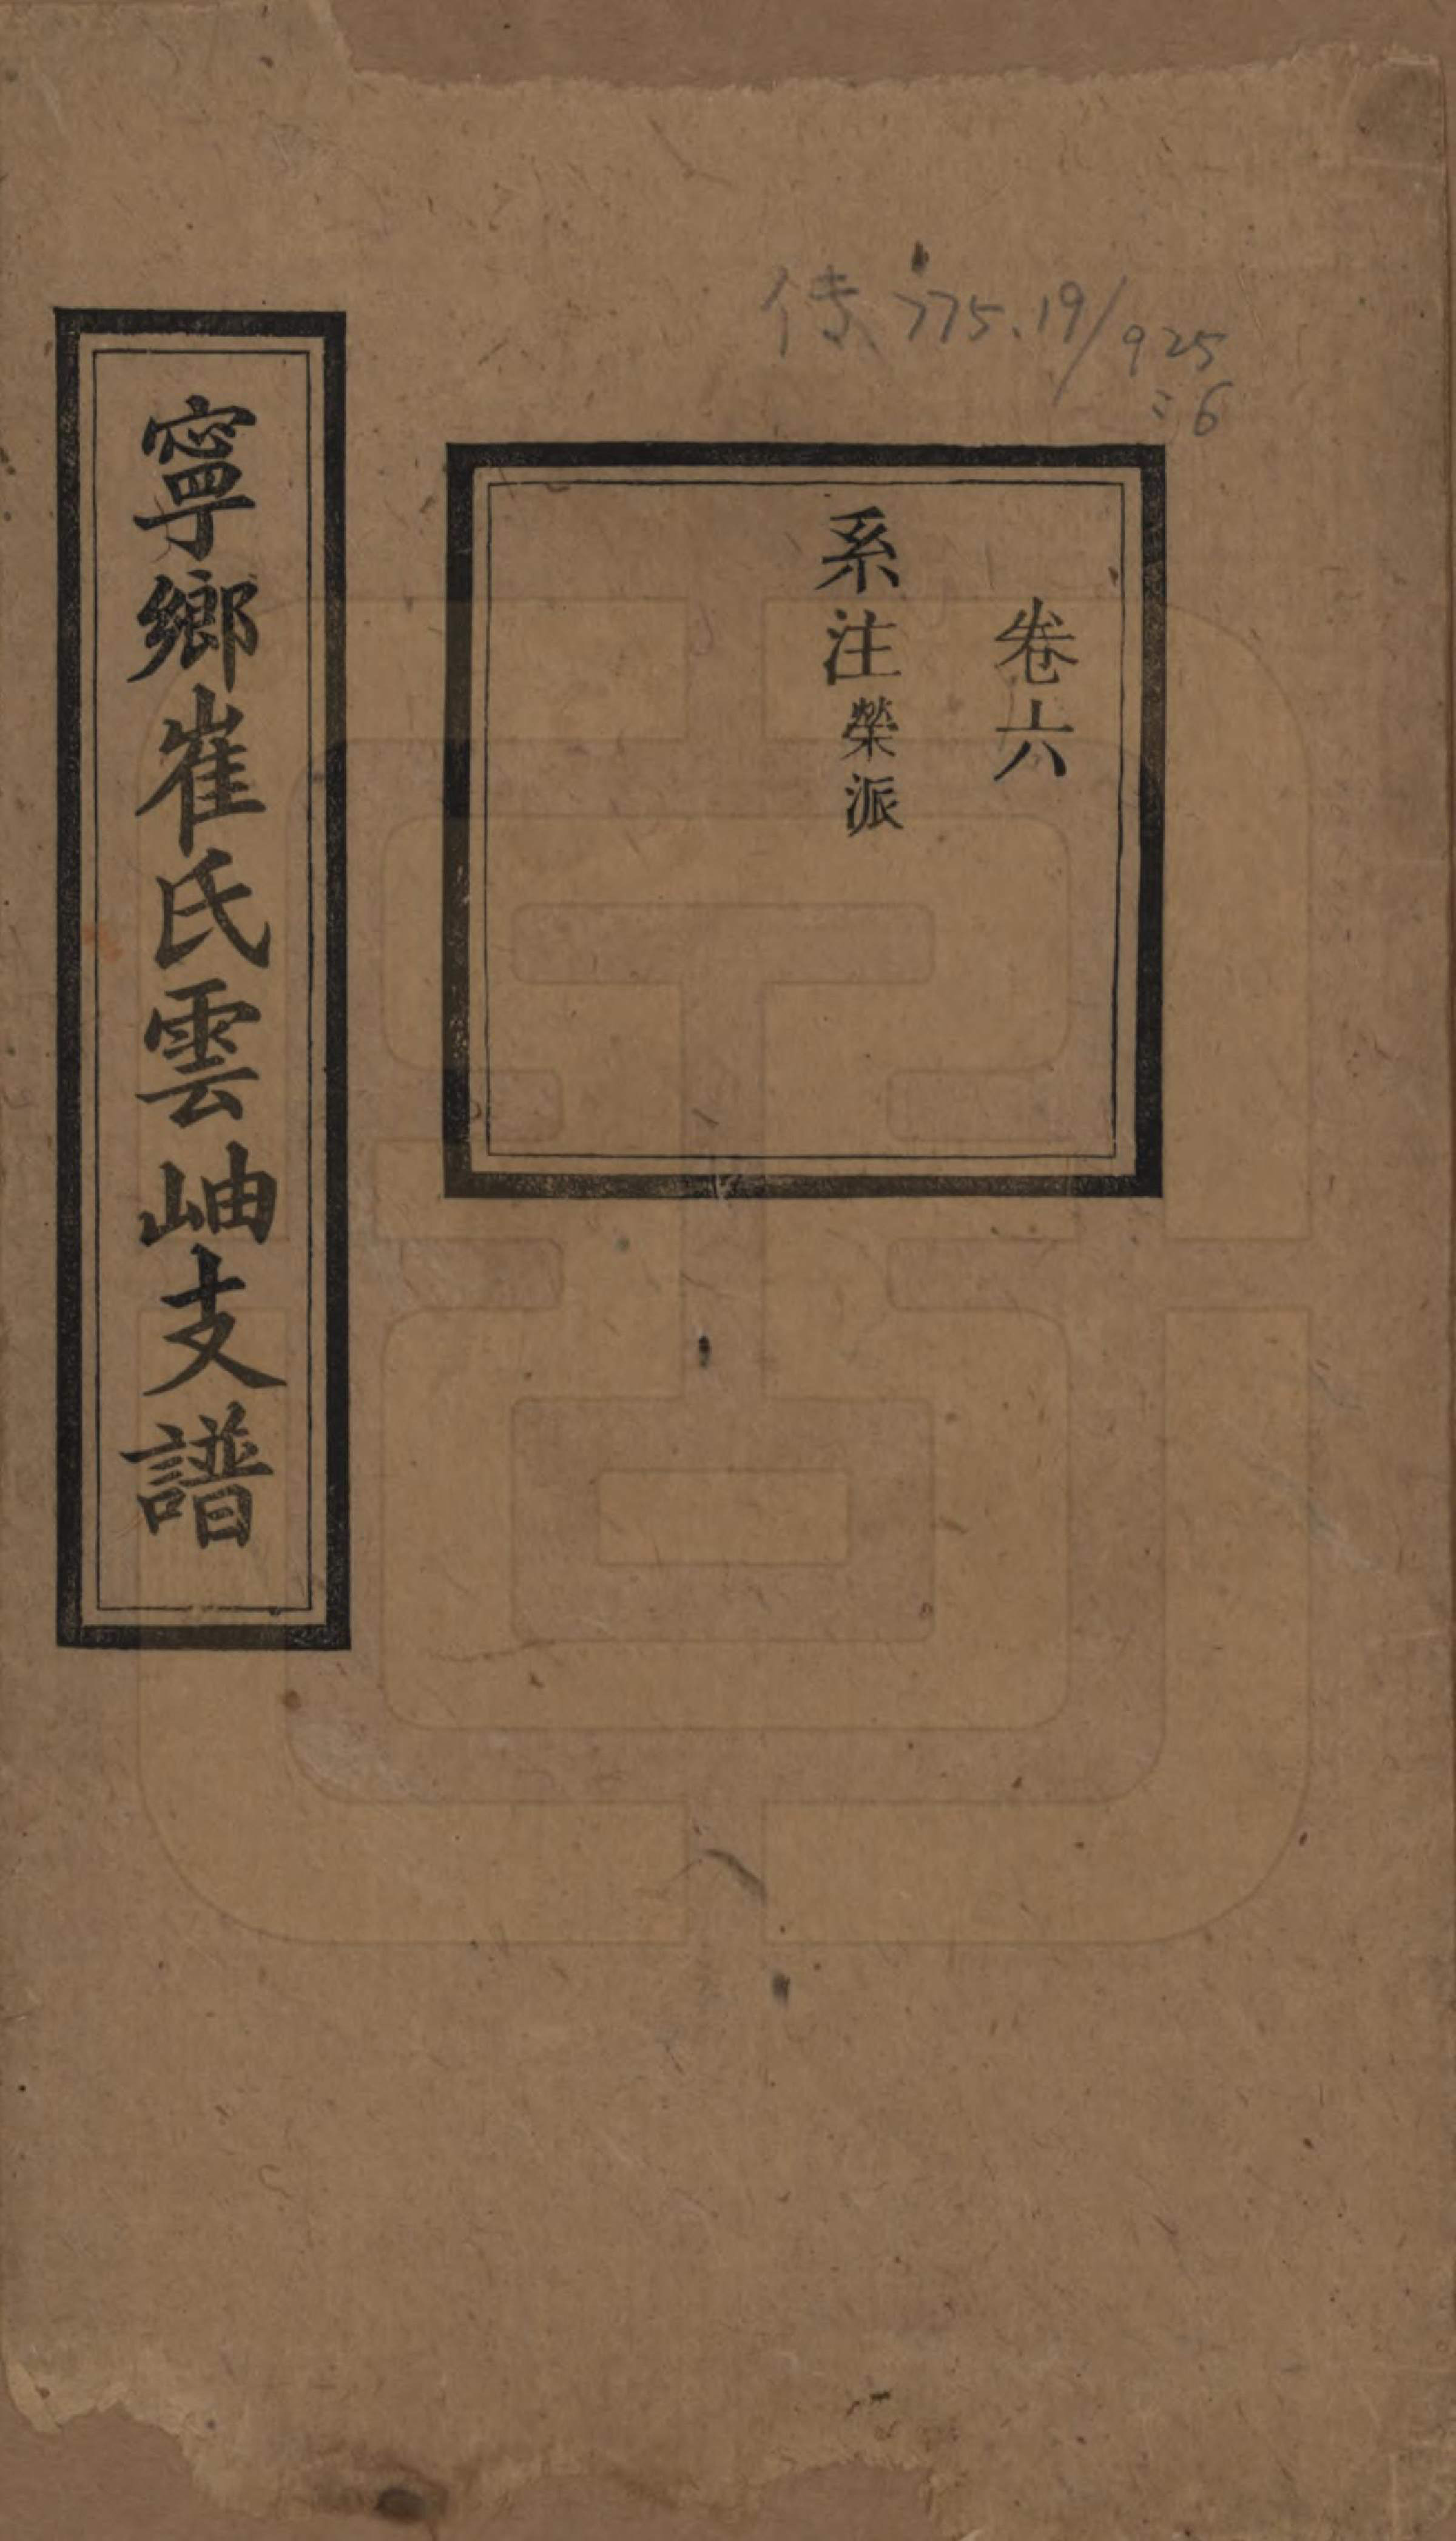 傳 775.19/925
:6
卷六
系注榮派
寧鄉崔氏雲岫支譜